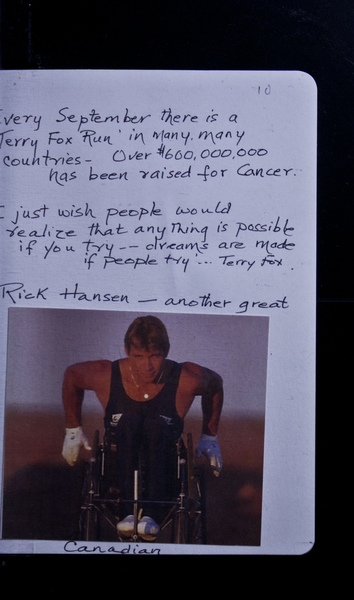 10
Every September there is a
'Terry Fox Run' in many, many
countries - Over $600,000,000
has been raised for Cancer.
I just wish people would
realize that anything is possible
if you try -- dreams are made
if people try'... Terry Fox.
Rick Hansen — another great
Canadian